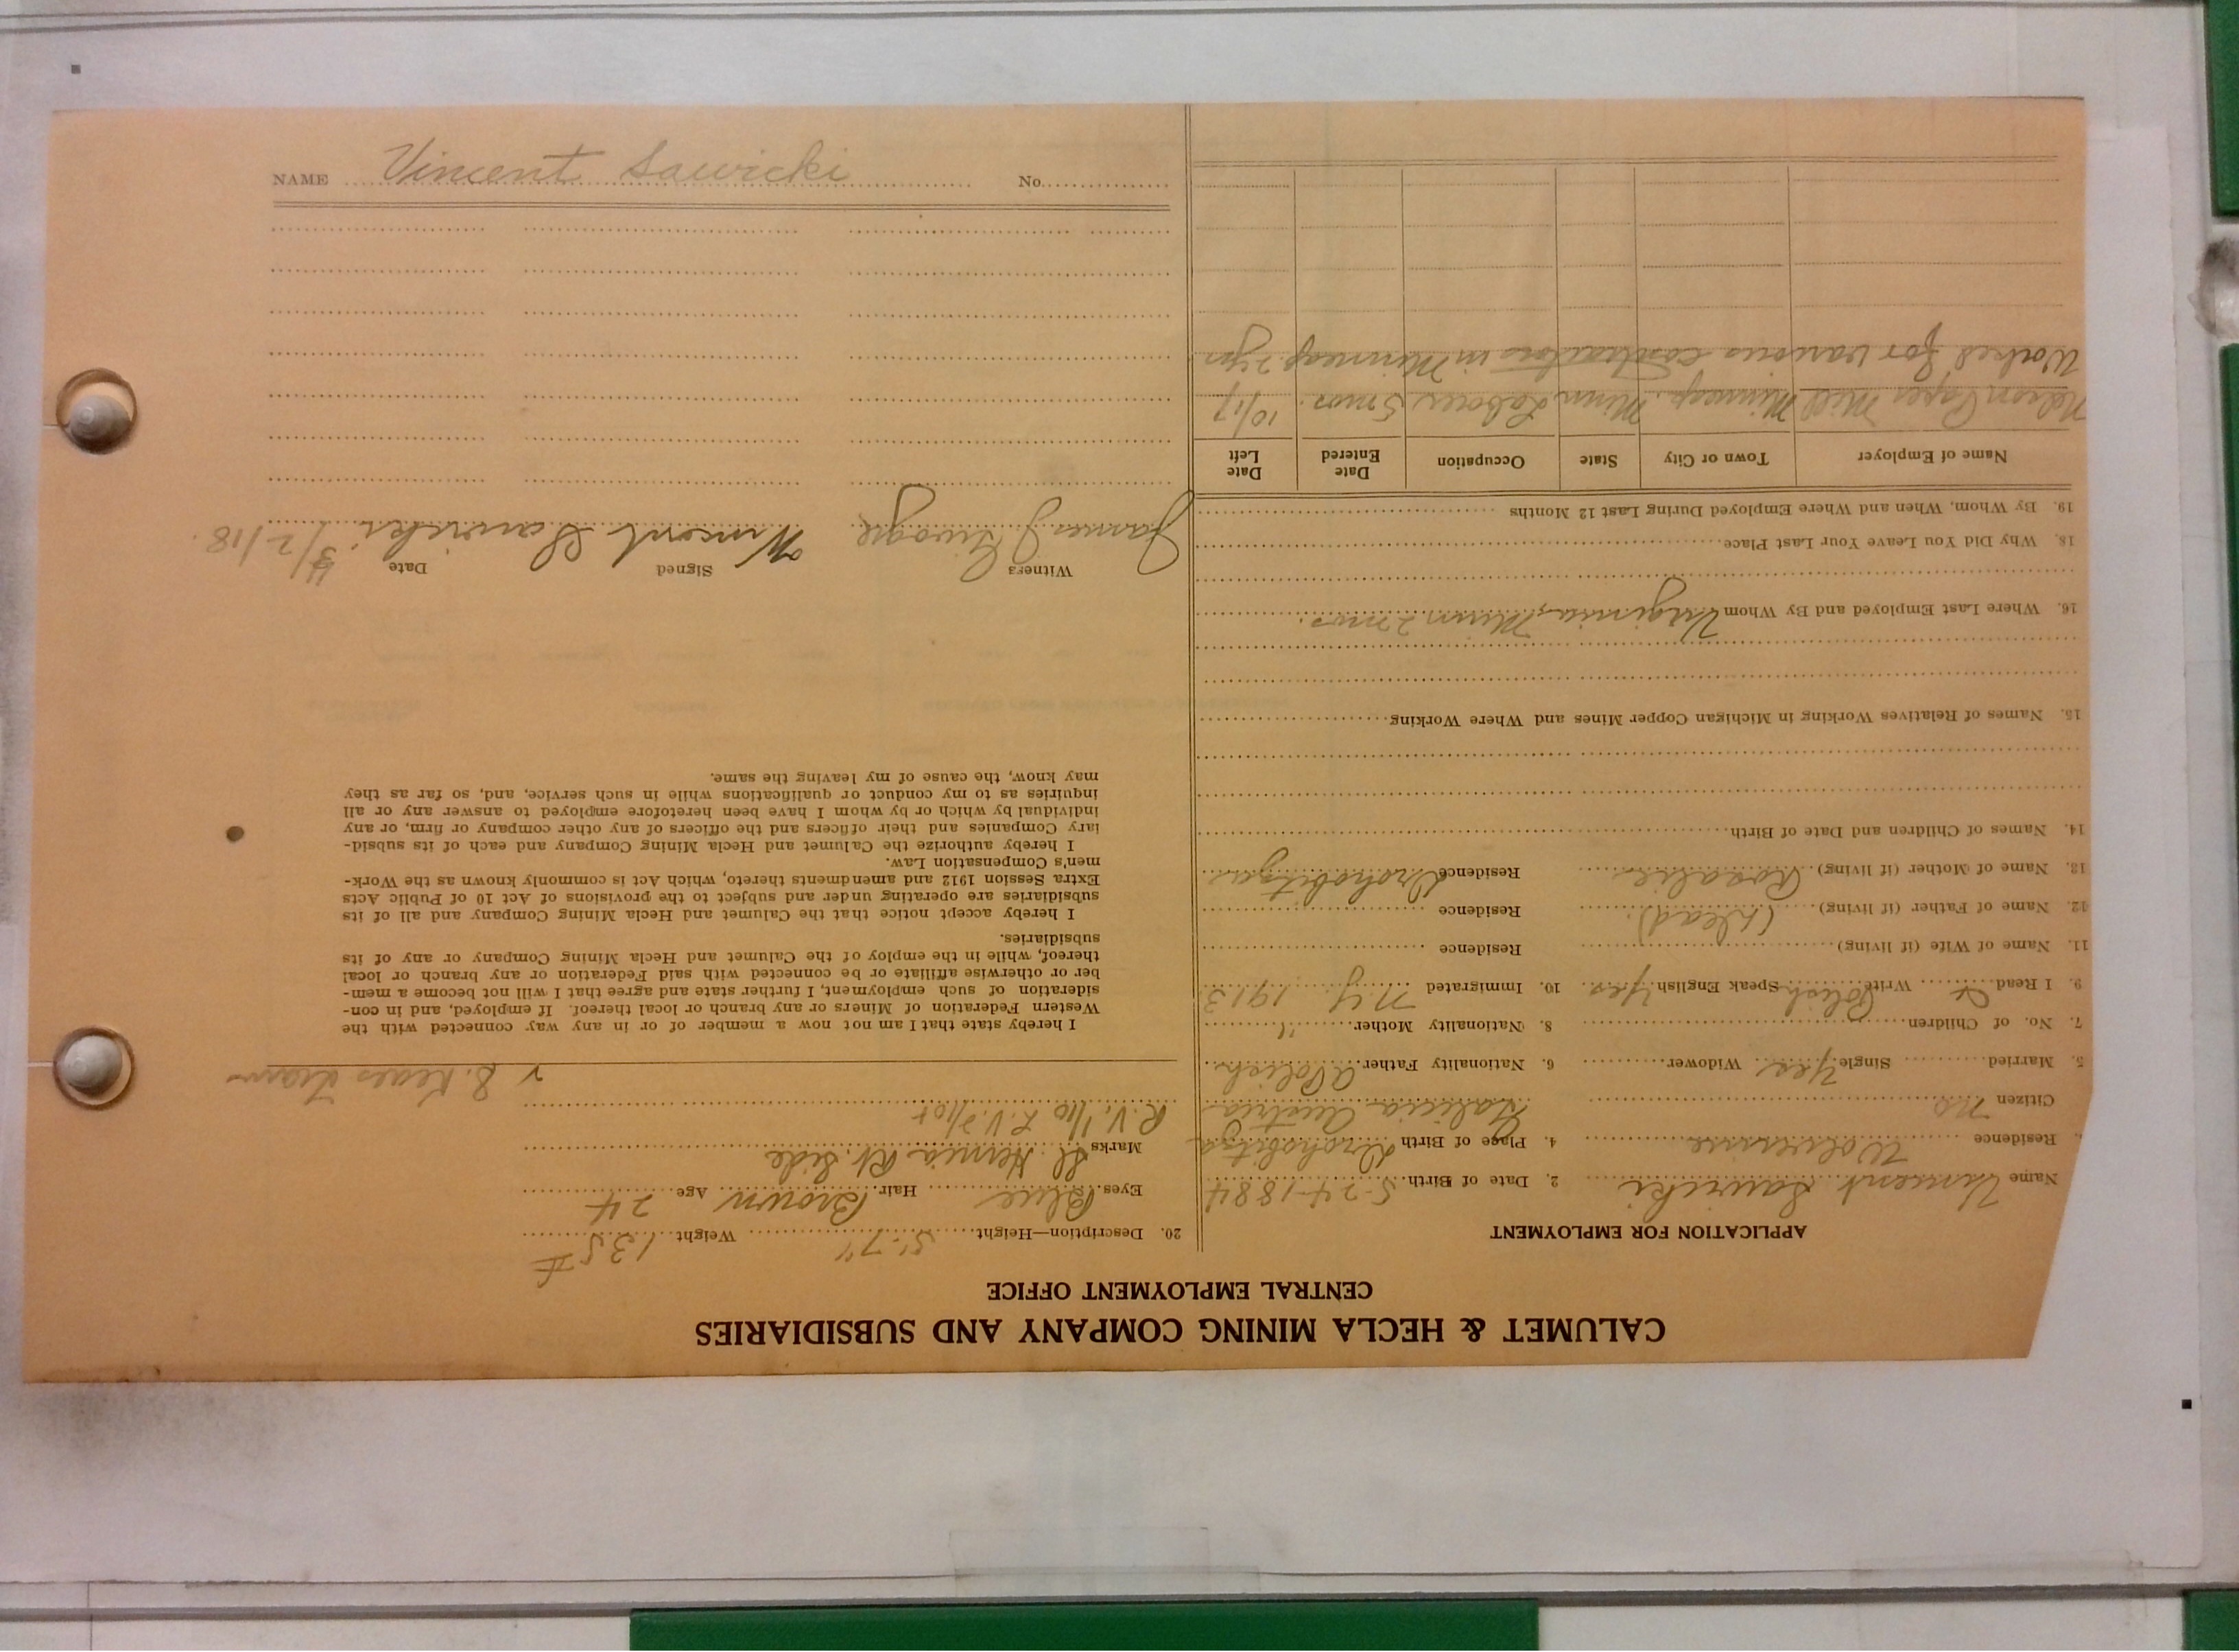 CALUMET & HECLA MINING COMPANY AND SUBSIDIARIES
CENTRAL EMPLOYMENT OFFICE
APPLICATION FOR EMPLOYMENT
Name Vincent Sawicki 2. Date of Birth 5-24-1884
Residence Wolverine 4. Place of Birth Drohobitza
Citizen no Galicia Austria
5. Married Single Yes Widower 6. Nationality Father Polish
7. No. of Children 8. Nationality Mother "
9. I Read & Write Polish Speak English Yes 10. Immigrated N.Y. 1913
11. Name of Wife (if living) Residence
12. Name of Father (if living) (Dead) Residence
13. Name of Mother (if living) Rosalie Residence
14. Names of Children and Date of Birth
15. Names of Relatives Working in Michigan Copper Mines and Where Working
16. Where Last Employed and By Whom Virginia, Minn 2 mos.
18. Why Did You Leave Your Last Place
19. By Whom, When and Where Employed During Last 12 Months
Name of Employer Town or City State Occupation Date Entered Date Left
Nelson Paper Mill Minneap. Minn Laborer 5 mos. 10/17
Worked for various contractors in Minneap. 2 yrs
20. Description—Height 5'-7" Weight 135#
Eyes Blue Hair Brown Age 24
Marks Sl. Hernia Rt. Side
R.V. 1/10 L.V. 2/10+
I hereby state that I am not now a member of or in any way connected with the
Western Federation of Miners or any branch or local thereof. If employed, and in con-
sideration of such employment, I further state and agree that I will not become a mem-
ber or otherwise affiliate or be connected with said Federation or any branch or local
thereof, while in the employ of the Calumet and Hecla Mining Company or any of its
subsidiaries.
I hereby accept notice that the Calumet and Hecla Mining Company and all of its
subsidiaries are operating under and subject to the provisions of Act 10 of Public Acts
Extra Session 1912 and amendments thereto, which Act is commonly known as the Work-
men's Compensation Law.
I hereby authorize the Calumet and Hecla Mining Company and each of its subsid-
iary Companies and their officers and the officers of any other company or firm, or any
individual by which or by whom I have been heretofore employed to answer any or all
inquiries as to my conduct or qualifications while in such service, and, so far as they
may know, the cause of my leaving the same.
Witness Signed Date
James J. Wincent Sawicki /2/18.
NAME Vincent Sawicki No.